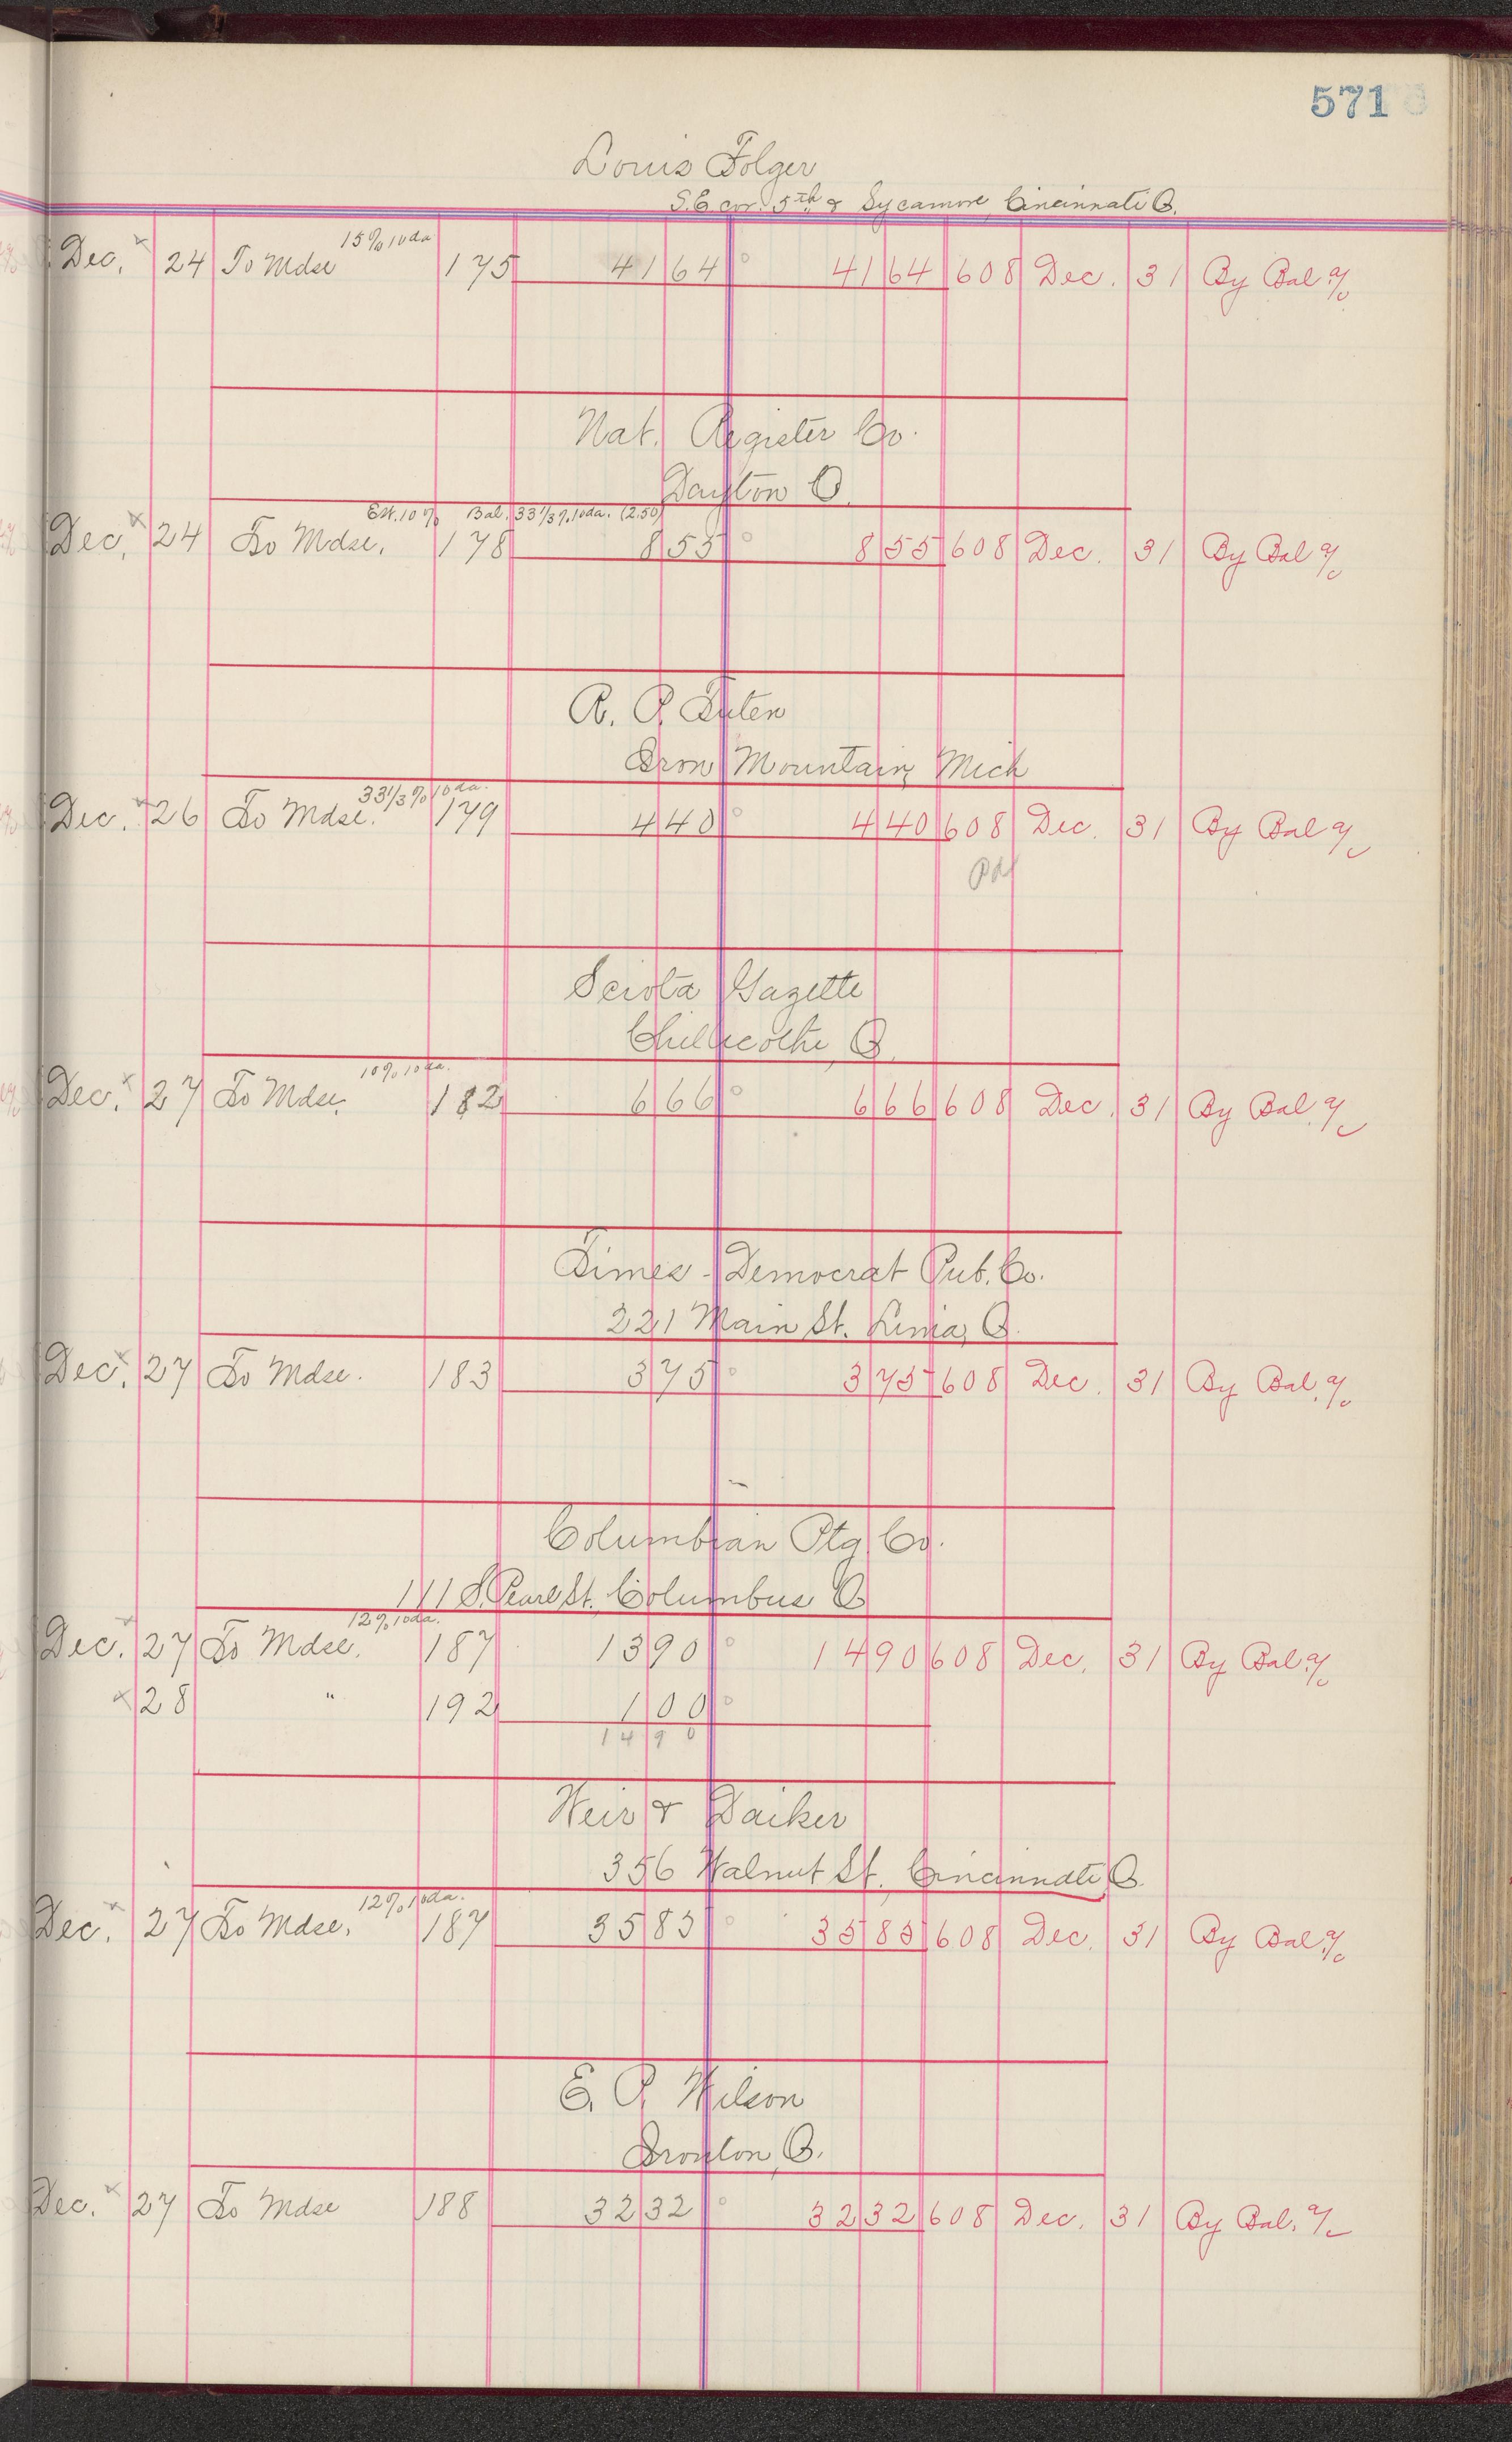 571
Louis Folger
S.E. cor. 5th & Sycamore, Cincinnati O.
15% 10 da
Dec. x 24 To Mdse 175 41 64 ° 41 64 608 Dec. 31 By Bal a/c
Nat. Register Co.
Dayton O.
Est. 10% Bal. 33 1/3% 10 da. (2.50)
Dec. x 24 To Mdse. 178 8 55 ° 8 55 608 Dec. 31 By Bal a/c
R. P. Tuten
Iron Mountain, Mich
33 1/3% 10 da.
Dec. x 26 To Mdse. 179 4 40 ° 4 40 608 Dec. 31 By Bal a/c
Pd
Sciota Gazette
Chillicothe, O.
10% 10 da.
Dec. x 27 To Mdse. 182 6 66 ° 6 66 608 Dec. 31 By Bal. a/c
Times-Democrat Pub. Co.
221 Main St. Lima, O.
Dec. x 27 To Mdse. 183 3 75 ° 3 75 608 Dec. 31 By Bal. a/c
Columbian Ptg Co.
111 S. Pearl St. Columbus O
12% 10 da.
Dec. x 27 To Mdse. 187 13 90 ° 14 90 608 Dec. 31 By Bal. a/c
x 28 " 192 1 00 °
14 90
Weir & Daiker
356 Walnut St. Cincinnati, O.
12% 10 da.
Dec. x 27 To Mdse. 187 35 83 ° 35 83 608 Dec. 31 By Bal. a/c
E. P. Wilson
Ironton, O.
Dec. x 27 To Mdse 188 32 32 ° 32 32 608 Dec. 31 By Bal. a/c